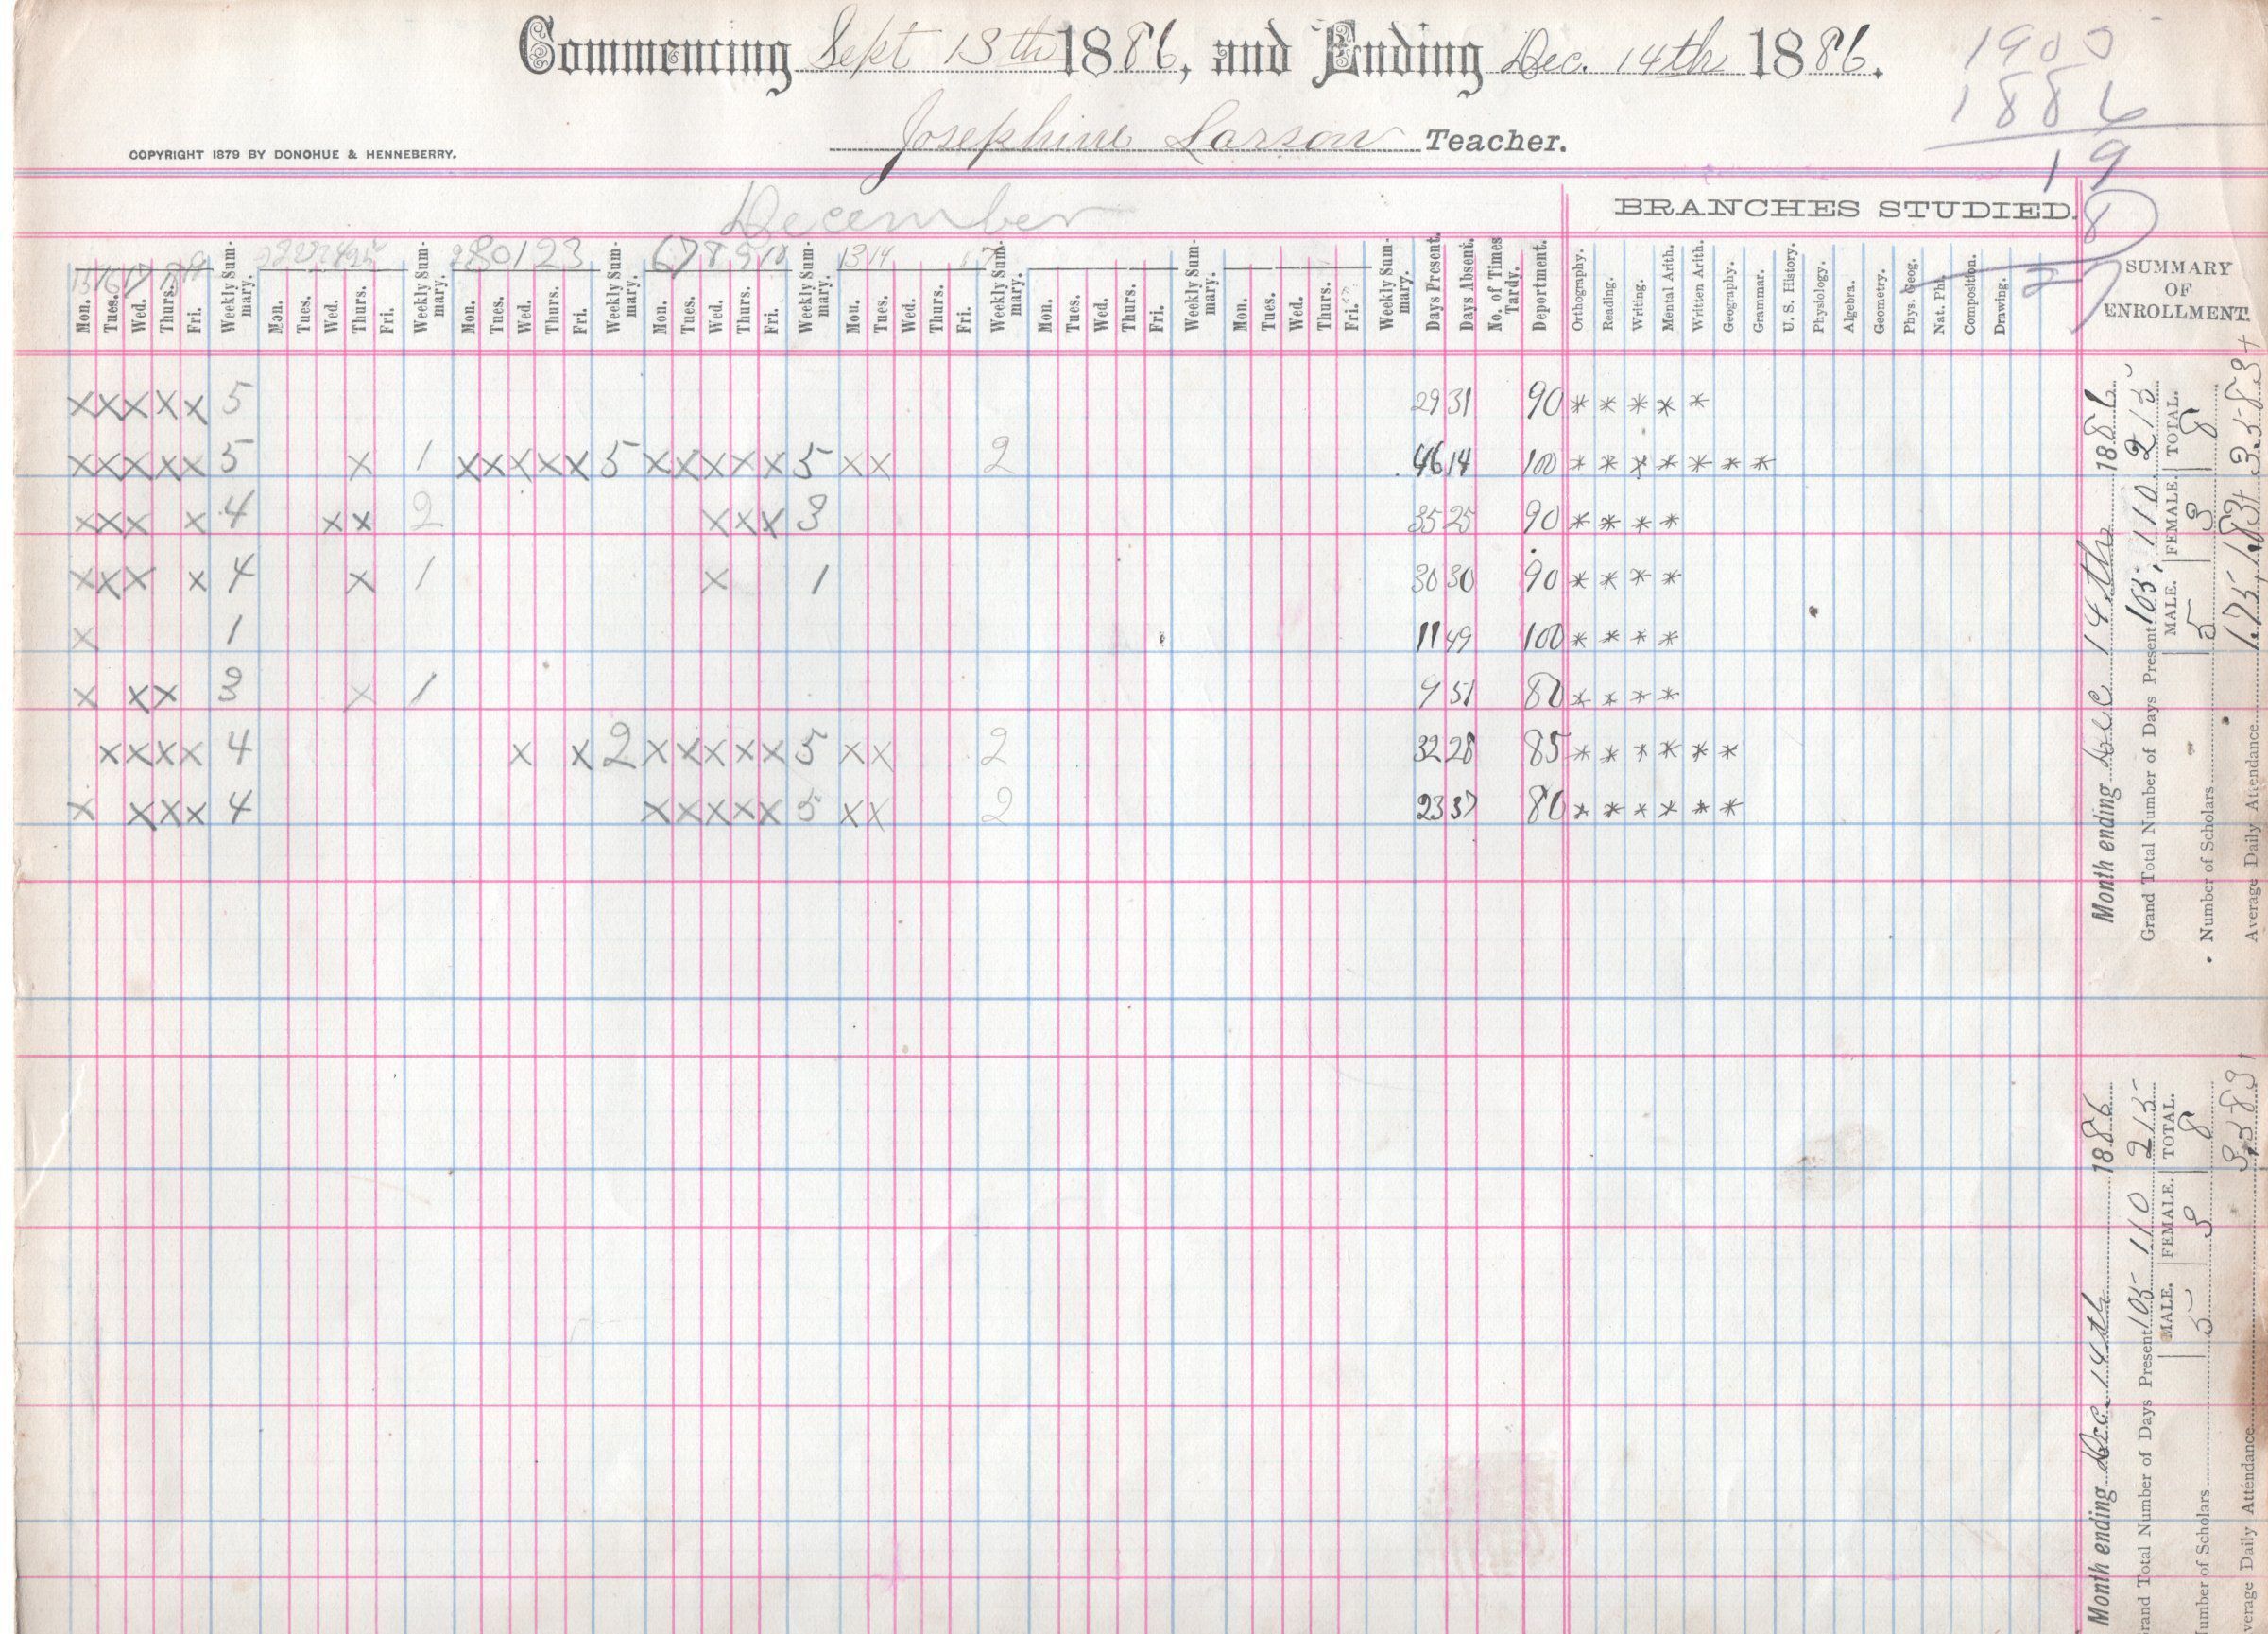 Commencing Sept 13th 1886, and Ending Dec. 14th 1886.
1900
1886
19
8
27
Josephine Larson Teacher.
COPYRIGHT 1879 BY DONOHUE & HENNEBERRY.
December
BRANCHES STUDIED.
SUMMARY
OF
ENROLLMENT.
15 16 17 18 19 22 23 24 25 29 30 1 2 3 6 7 8 9 10 13 14 17
Mon. Tues. Wed. Thurs. Fri. Weekly Summary. Mon. Tues. Wed. Thurs. Fri. Weekly Summary. Mon. Tues. Wed. Thurs. Fri. Weekly Summary. Mon. Tues. Wed. Thurs. Fri. Weekly Summary. Mon. Tues. Wed. Thurs. Fri. Weekly Summary. Mon. Tues. Wed. Thurs. Fri. Weekly Summary. Mon. Tues. Wed. Thurs. Fri. Weekly Summary. Days Present. Days Absent. No. of Times Tardy. Deportment. Orthography. Reading. Writing. Mental Arith. Written Arith. Geography. Grammar. U. S. History. Physiology. Algebra. Geometry. Phys. Geog. Nat. Phil. Composition. Drawing.
x x x x x 5 29 31 90 * * * * *
x x x x x 5 x 1 x x x x x 5 x x x x x 5 x x 2 46 14 100 * * * * * * *
x x x x 4 x x 2 x x x 3 35 25 90 * * * *
x x x x 4 x 1 x 1 30 30 90 * * * *
x 1 11 49 100 * * * *
x x x 3 x 1 9 51 80 * * * *
x x x x 4 x x 2 x x x x x 5 x x 2 32 28 85 * * * * * *
x x x x 4 x x x x x 5 x x 2 23 37 80 * * * * * *
Month ending Dec 14th 1886
Grand Total Number of Days Present 105, 110 215
MALE. FEMALE. TOTAL.
Number of Scholars 5 3 8
Average Daily Attendance 1.75, 1.83+ 3.583+
Month ending Dec. 14th 1886
Grand Total Number of Days Present 105 110 215
MALE. FEMALE. TOTAL.
Number of Scholars 5 3 8
Average Daily Attendance 3.583+